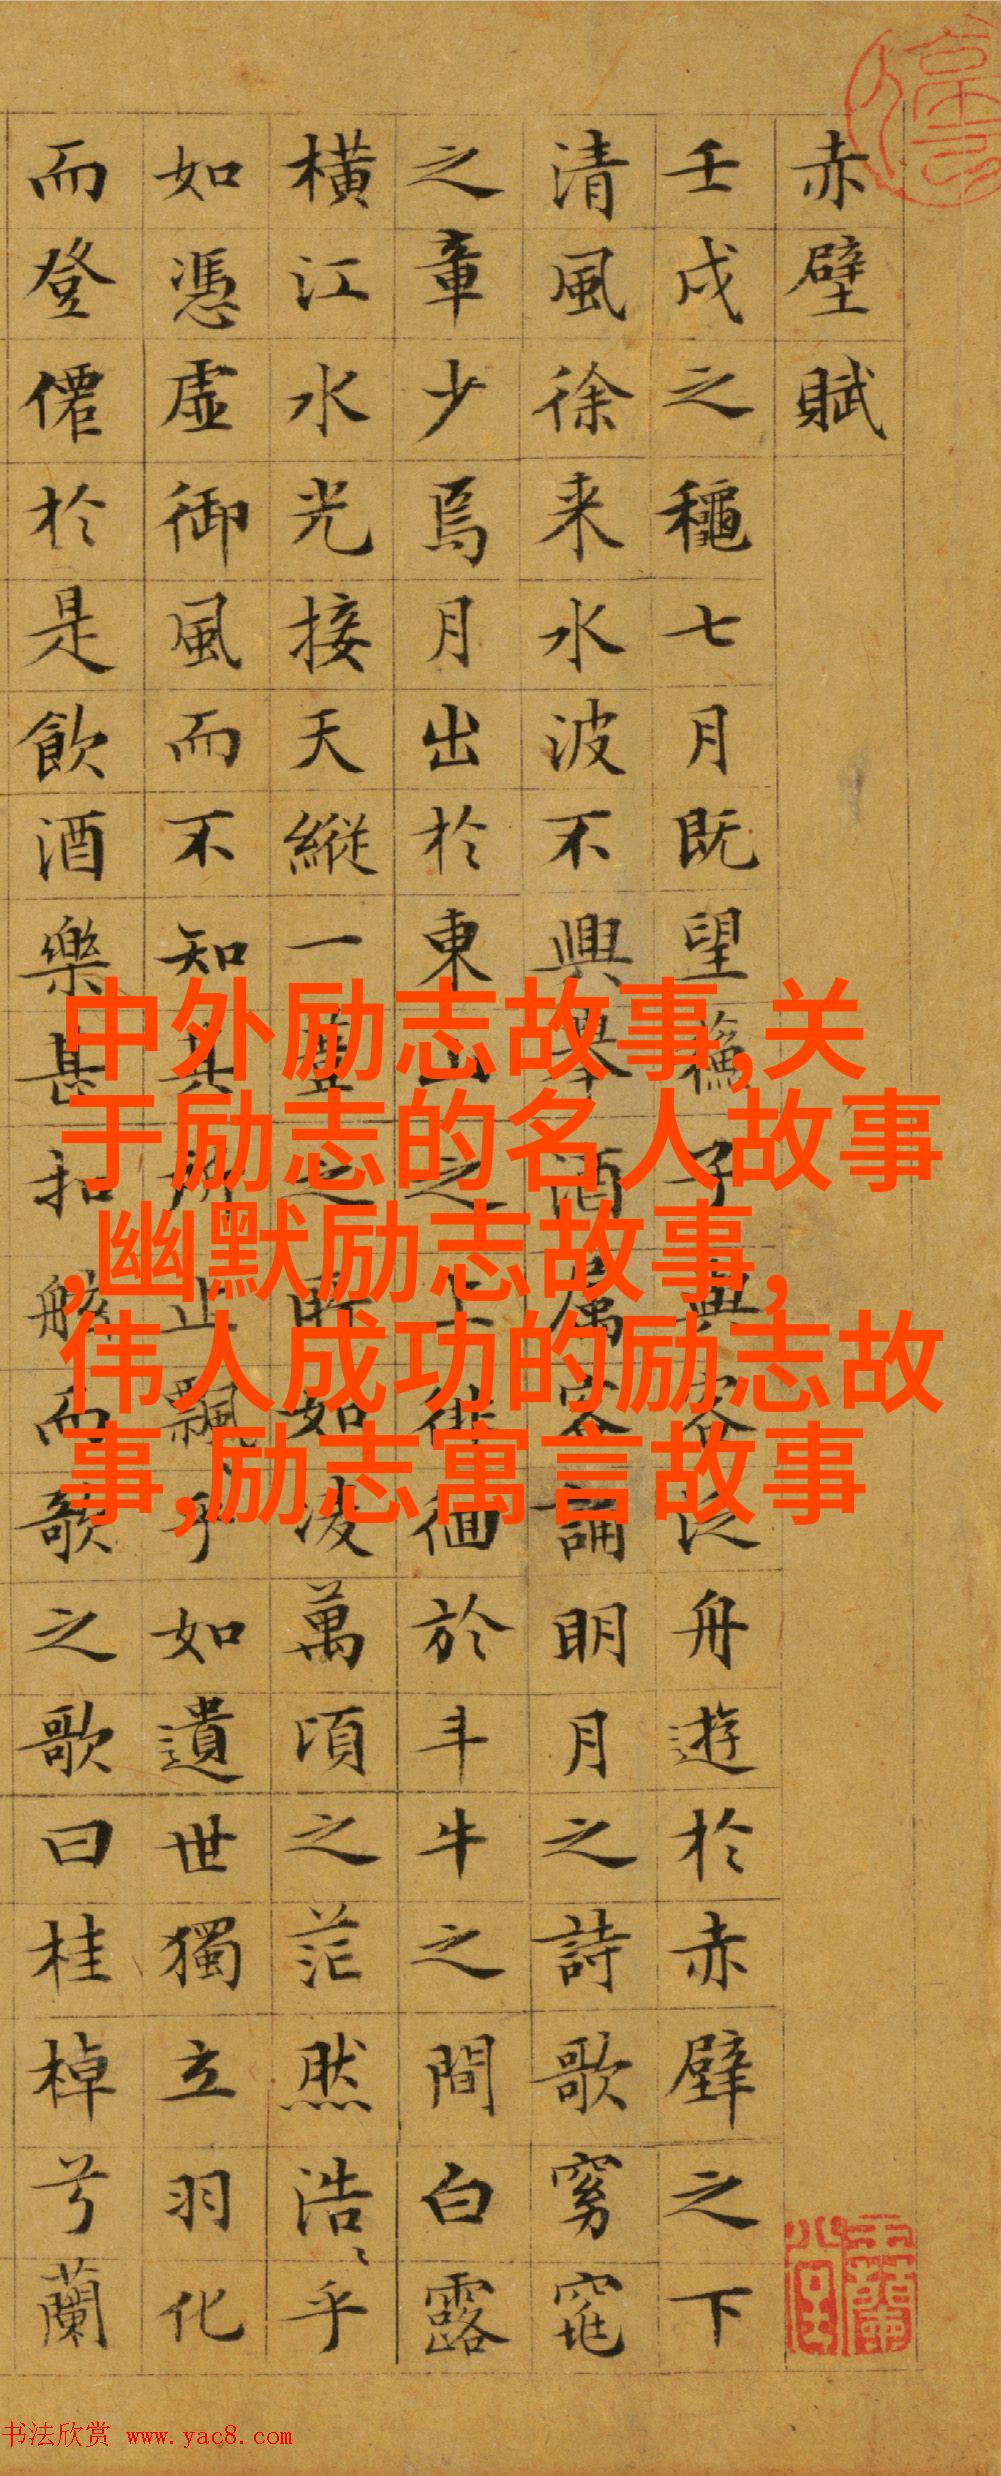 赤壁賦
壬戌之穐七月既望蘓子與客泛舟遊於赤壁之下
清風徐来水波不興舉酒属客誦明月之詩歌窈窕
之章少焉月出於東山之上徘徊於斗牛之間白露
橫江水光接天縱一葦之所如凌萬頃之茫然浩〻乎
如憑虛御風而不知其所止飄〻乎如遺世獨立羽化
而登僊於是飲酒樂甚扣舷而歌之歌曰桂棹兮蘭
中外励志故事,关
于励志的名人故事
,幽默励志故事,
伟人成功的励志故
事,励志寓言故事
书法欣赏 www.yac8.com